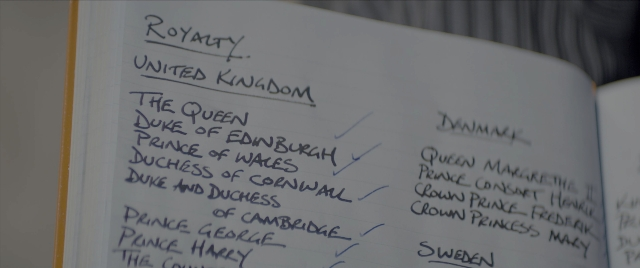 ROYALTY.
UNITED KINGDOM
THE QUEEN
DUKE OF EDINBURGH
PRINCE OF WALES
DUCHESS OF CORNWALL
DUKE AND DUCHESS
OF CAMBRIDGE
PRINCE GEORGE
PRINCE HARRY
THE COUN
DENMARK
QUEEN MARGRETHE II
PRINCE CONSORT HENRIK
CROWN PRINCE FREDERIK
CROWN PRINCESS MARY
SWEDEN